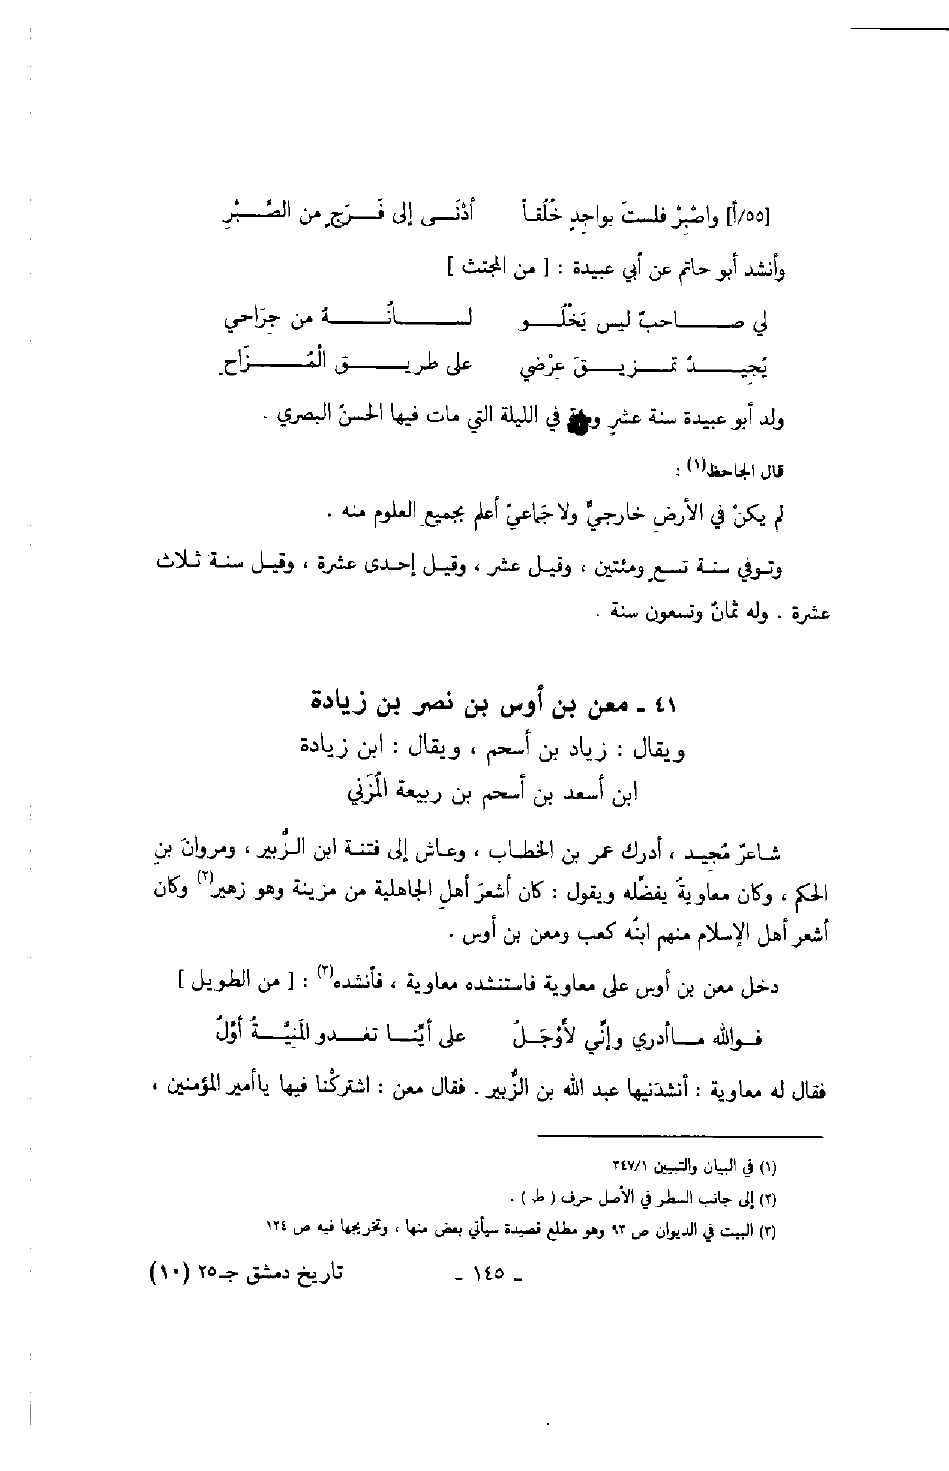 [٥٥/أ] واصْبِرْ فلستَ بواجِدٍ خُلُقاً أدْنَى إلى فَرَجٍ من الصَّبْرِ
وأنشد أبو حاتم عن أبي عبيدة : [ من المجتث ]
لي صاحبٌ ليس يَخْلُو لسانُه من جِرَاحي
يُجيدُ تمزيقَ عِرْضي على طريق الْمُزَّاحِ
ولد أبو عبيدة سنة عشرٍ ومئة في الليلة التي مات فيها الحسنُ البصري .
قال الجاحظ(١) :
لم يكنْ في الأرضِ خارجيٌّ ولا جَماعيّ أعلم بجميعِ العلوم منه .
وتوفي سنة تسعٍ ومئتين ، وقيل عشر ، وقيل إحدى عشرة ، وقيل سنة ثلاث
عشرة . وله ثمانٌ وتسعون سنة .
٤١ ـ معن بن أوس بن نصر بن زيادة
ويقال : زياد بن أسحم ، ويقال : ابن زيادة
ابن أسعد بن أسحم بن ربيعة الْمُزَني
شاعرٌ مُجيد ، أدرك عمر بن الخطاب ، وعاش إلى فتنة ابن الزُّبير ، ومروانَ بنِ
الحكم ، وكان معاويةُ يفضِّله ويقول : كان أشعرَ أهلِ الجاهلية من مزينة وهو زهير(٢) وكان
أشعر أهل الإسلام منهم ابنُه كعب ومعن بن أوس .
دخل معن بن أوس على معاوية فاستنشده معاوية ، فأنشده(٣) : [ من الطويل ]
فوالله ماأدري وإنِّي لأَوْجَلُ على أيِّنا تغدو المَنيَّةُ أوّلُ
فقال له معاوية : أنشدَنيها عبد الله بن الزُّبير . فقال معن : اشتركْنا فيها ياأمير المؤمنين ،
(١) في البيان والتبيين ٣٤٧/١
(٢) إلى جانب السطر في الأصل حرف ( ط ) .
(٣) البيت في الديوان ص ٩٣ وهو مطلع قصيدة سيأتي بعض منها ، وتخريجها فيه ص ١٢٤
ـ ١٤٥ ـ تاريخ دمشق جـ٢٥ (١٠)